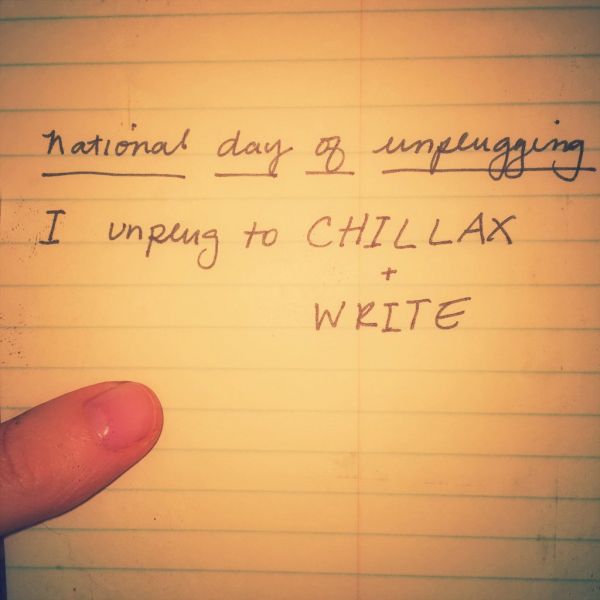 national day of unplugging
I unplug to CHILLAX
+
WRITE